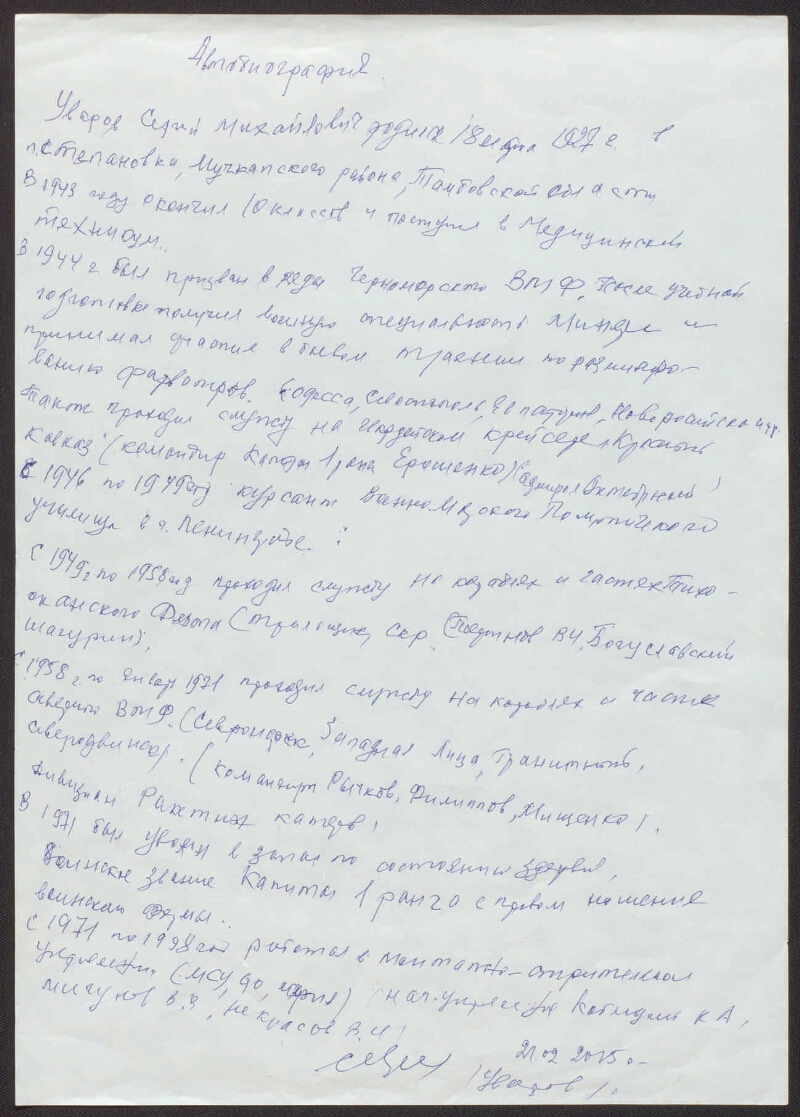 Автобиография
Уваров Сергей Михайлович родился 18 1927 г. в
п. Степановка, Мучкапского района, Тамбовской области
В 1943 году окончил 10 классов и поступил в Медицинский
техникум..
В 1944 г был призван в ряды Черноморского ВМФ, после учебной
подготовке получил военную специальность Минёр и
принимал участие в боевом тралении по разминиро-
ванию фарватеров. (Одесса, Севастополь, Евпатория, Новороссийск и др.
также проходил службу на Гвардейском крейсере "Красный
Кавказ" (командир Капитан 1 ранга Ерошенко) (адмирал Октябрьский)
С 1946 по 1949 год курсант Военно Морского Политического
училища в г. Ленинграде.
С 1949г по 1958 год проходил службу на кораблях и частях Тихо-
океанского Флота (тральщик, скр. ВИ, Богуславский
Шагурин),
С 1958 г. по январь 1971 проходил службу на кораблях и частях
северного ВМФ. (Североморск, Западная Лица, Гранитный,
северодвинск). (командиры Рычков, Филиппов, Мищенко).
дивизион Ракетных катеров,
В 1971 был уволен в запас по состоянию здоровья,
Воинское звание Капитан 1 ранга с правом ношения
воинской формы..
С 1971 по 1998 год работал в монтажно-строительном
управлении (МСУ, 90, ) (нач. управления К А,
Мигунов В.З, Некрасов В.И)
21.02 2015 г.
(Уваров).